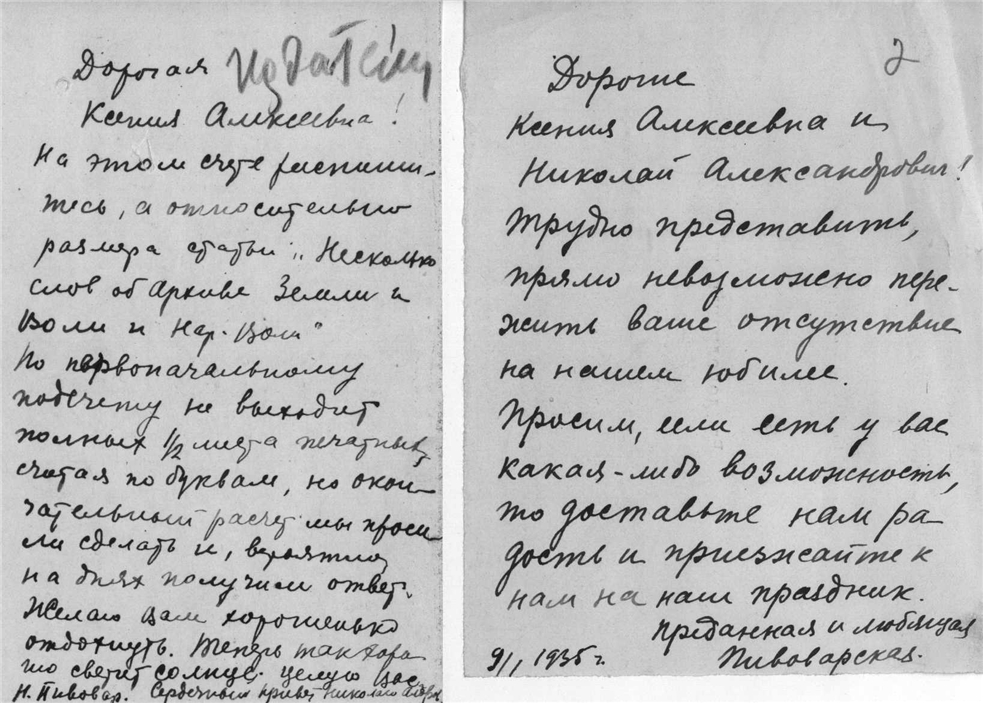 Дорогая
Ксения Алексеевна!
На этом счете распиши-
тесь, а относительно
размера статьи „Несколько
слов об Архиве Земли и
Воли и Нар. Воли"
По первоначальному
подсчету не выходит
полных 1/2 листа печатных,
считая по буквам, но окон-
чательный расчет мы проси-
ли сделать и, вероятно,
на днях получим ответ.
Желаю Вам хорошенько
отдохнуть. Теперь так хоро
шо светит солнце. Целую Вас
Н. Пивовар. Сердечный привет Николаю
2
Дорогие
Ксения Алексеевна и
Николай Александрович!
Трудно представить,
прямо невозможно пере-
жить ваше отсутствие
на нашем юбилее.
Просим, если есть у вас
какая-либо возможность,
то доставьте нам ра
дость и приезжайте к
нам на наш праздник.
Преданная и любящая
9/I 1935 г. Пивоварская.